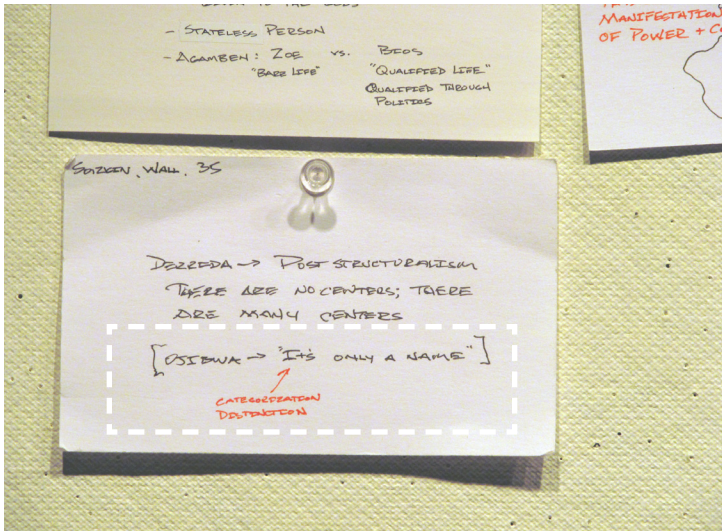 - STATELESS PERSON
- AGAMBEN: ZOE VS. BIOS
"BARE LIFE" "QUALIFIED LIFE"
QUALIFIED THROUGH
POLITICS
MANIFESTATION
OF POWER +
WALL, 35
DERREDA → POST STRUCTURALISM
THERE ARE NO CENTERS; THERE
ARE MANY CENTERS
[OJIBWA → "IT'S ONLY A NAME"]
CATEGORIZATION
DISTINCTION